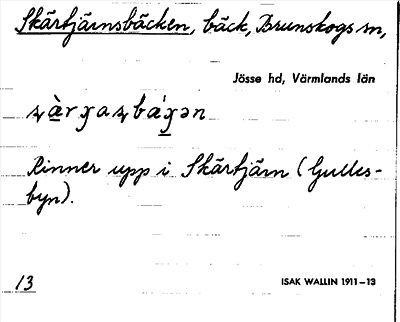 Skärtjärnsbäcken, bäck, Brunskogs sn,
Jösse hd, Värmlands län
Rinner upp i Skärtjärn (Gulles-
byn).
13
ISAK WALLIN 1911–13